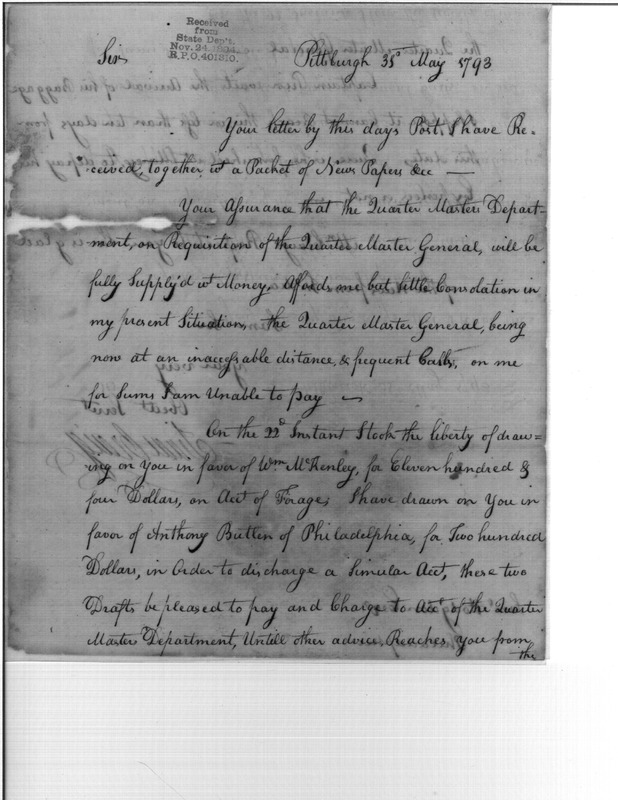 Received
from
State Dep't.
Nov. 24, 1894.
R.P.O. 401310.
Sir
Pittsburgh 31st May 1793
Your letter by this days Post, I have Re-
ceived, together wt a Packet of News Papers &c —
Your Assurance that the Quarter Masters Depart-
ment, on Requisition of the Quarter Master General, will be
fully Supply'd wt Money, Affords me but little Consolation in
my present Situation, the Quarter Master General, being
now at an inaccessable distance, & frequent Calls, on me
for Sums I am Unable to pay —
On the 22d Instant I took the liberty of draw-
ing on you in favor of Wm McKenley, for Eleven hundred &
four Dollars, on Acct of Forage; I have drawn on You in
favor of Anthony Butlen of Philadelphia, for Two hundred
Dollars, in Order to discharge a Simular Acct, these two
Drafts be pleased to pay and Charge to Acct of the Quarter
Masters Department, Untill other advice, Reaches you from
the